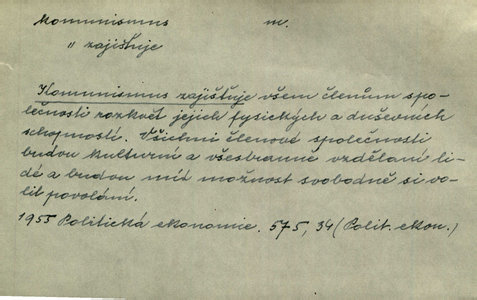 Komunismus m.
" zajišťuje
Komunismus zajišťuje všem členům spo-
lečnosti rozkvět jejich fysických a duševních
schopností. Všichni členové společnosti
budou kulturní a všestranně vzdělaní li-
dé a budou mít možnost svobodně si vo-
lit povolání.
1955 Politická ekonomie. 575, 34 (Polit. ekon.)